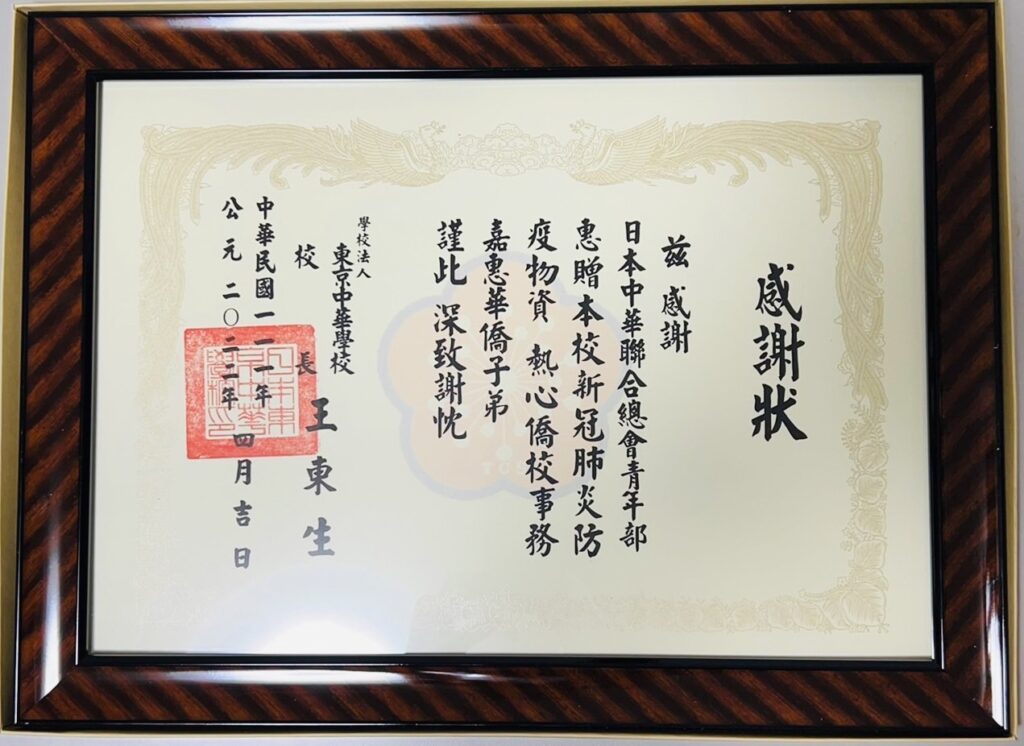 感謝狀
茲 感謝
日本中華聯合總會青年部
惠贈本校新冠肺炎防
疫物資 熱心僑校事務
嘉惠華僑子弟
謹此 深致謝忱
學校法人
東京中華學校
校 長 王 東 生
中華民國一一一年
公元二〇二二年 四月吉日